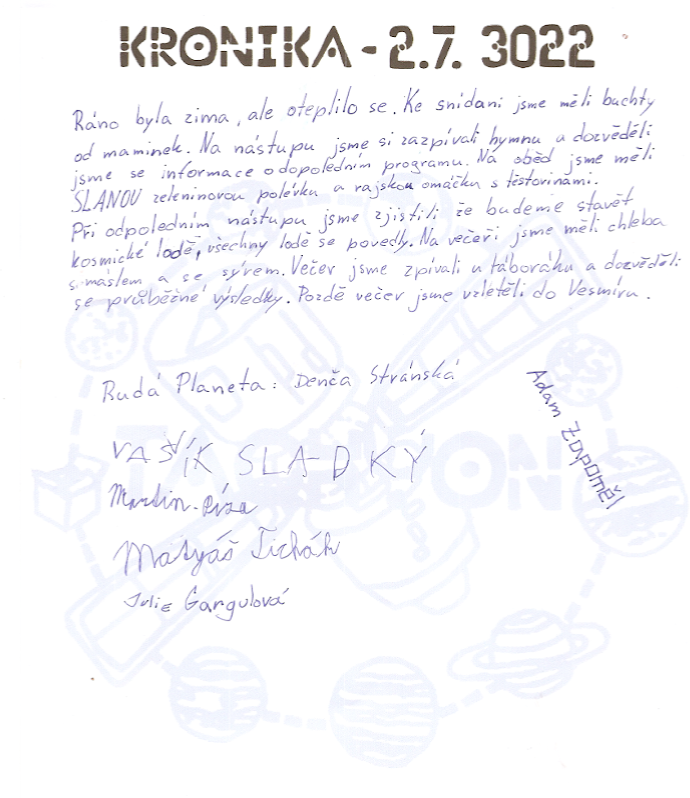 KRONIKA - 2.7. 3022
Ráno byla zima, ale oteplilo se. Ke snídani jsme měli buchty
od maminek. Na nástupu jsme si zazpívali hymnu a dozvěděli
jsme se informace o odpoledním programu. Na oběd jsme měli
SLANOU zeleninovou polévku a rajskou omáčku s těstovinami.
Při odpoledním nástupu jsme zjistili že budeme stavět
kosmické lodě, všechny lodě se povedly. Na večeři jsme měli chleba
s máslem a se sýrem. Večer jsme zpívali u táboráku a dozvěděli
se průběžné výsledky. Pozdě večer jsme vzletěli do Vesmíru.
Rudá Planeta: Denča Stránská
VAŠÍK SLADKÝ
Martin
Matyáš
Julie Gargulová
Adam Zapoměl